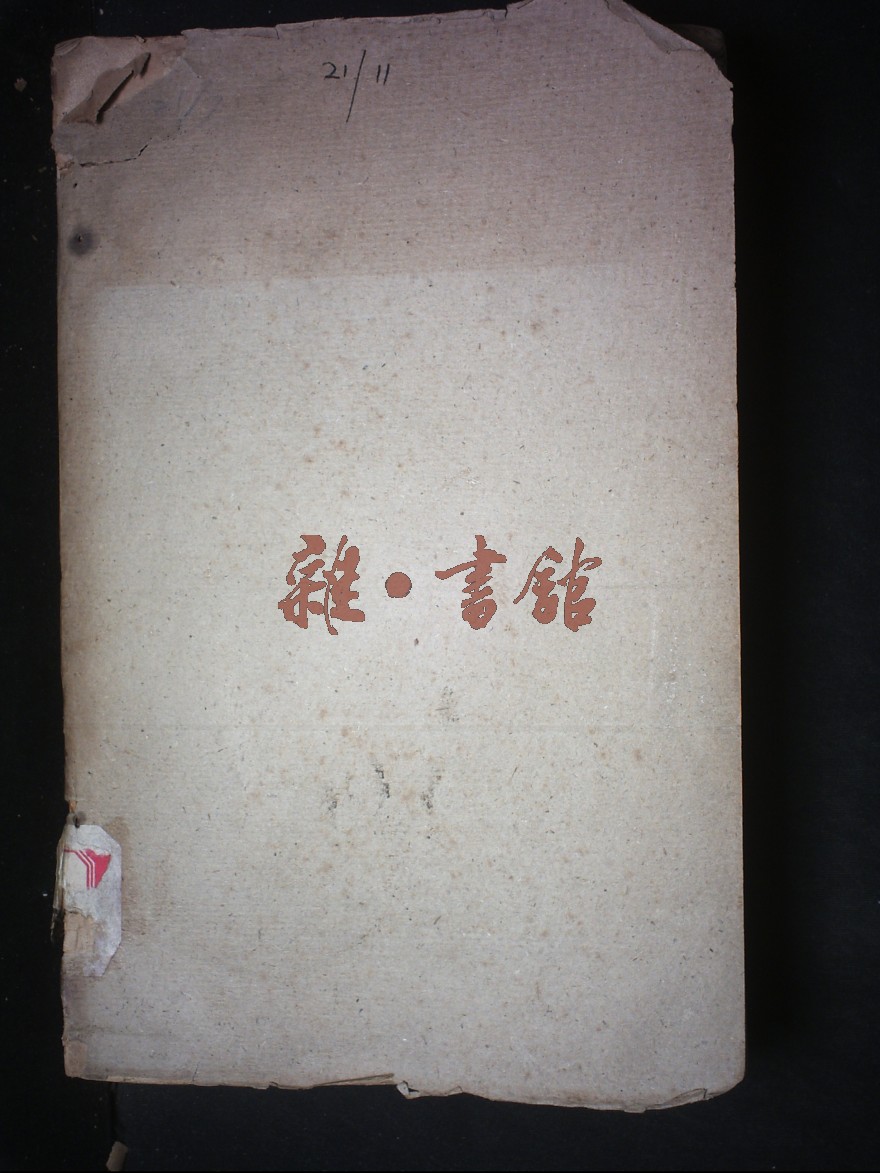 21/11
雜·書館